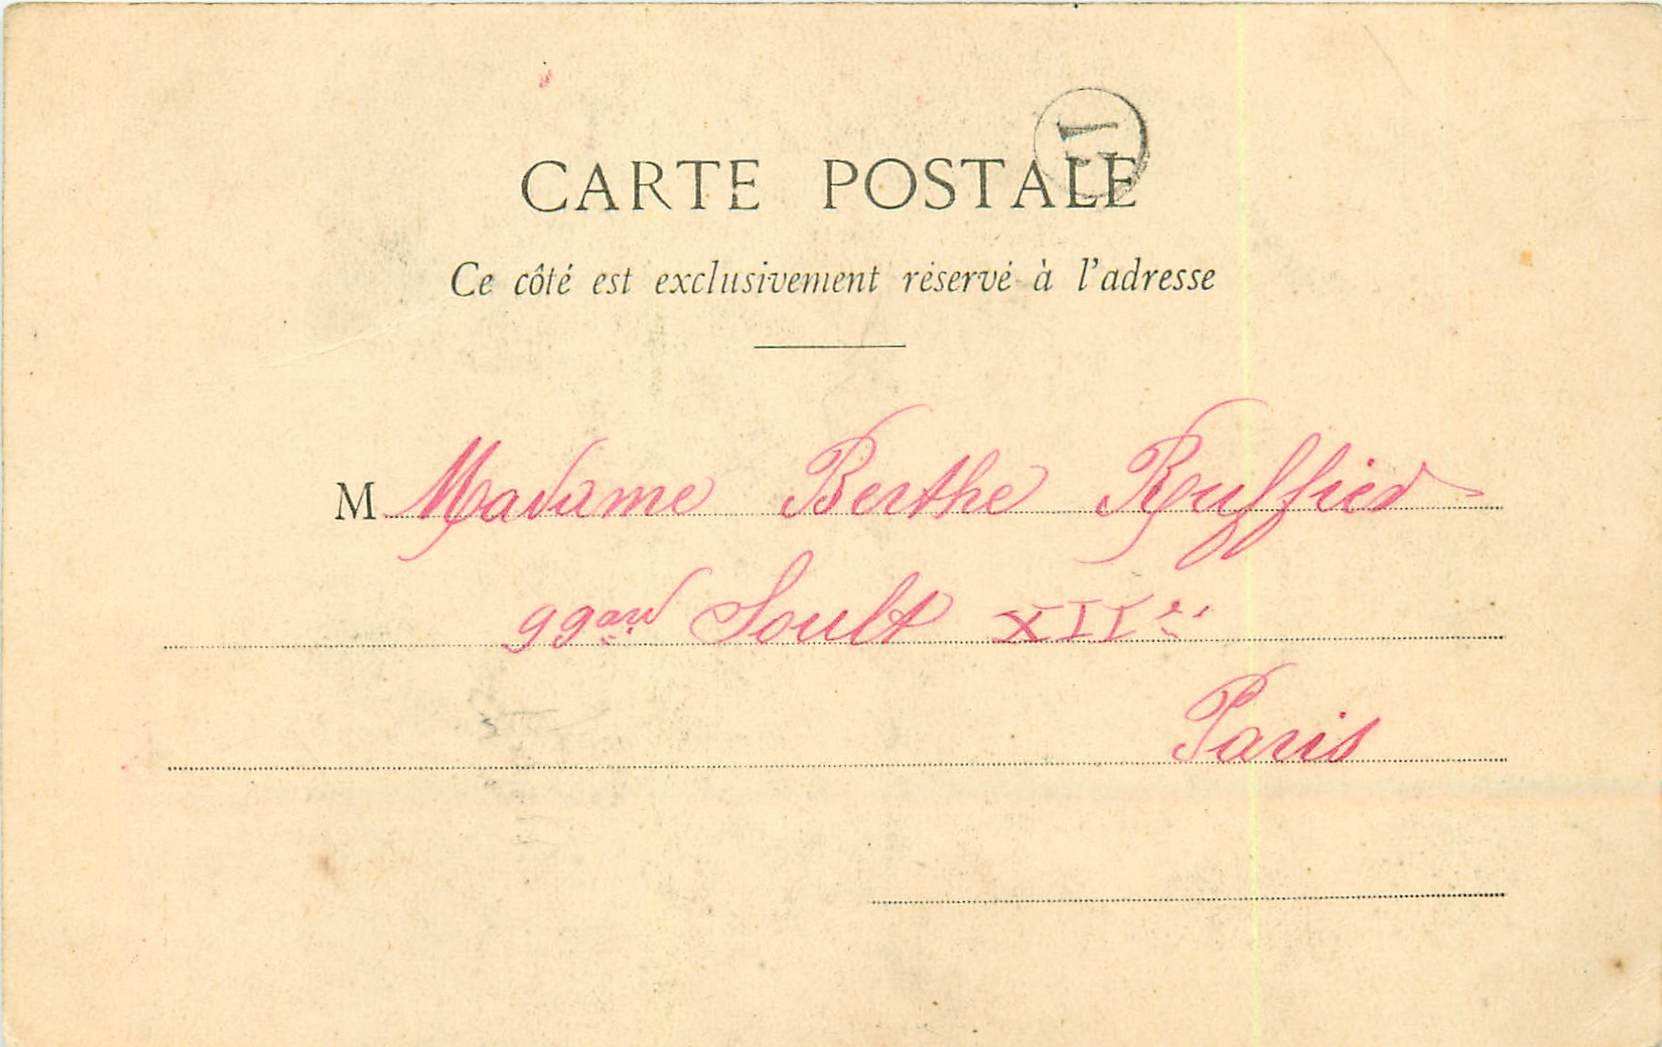 CARTE POSTALE
Ce côté est exclusivement réservé à l'adresse
M Madame Berthe Ruffier
99 Soult XII
Paris